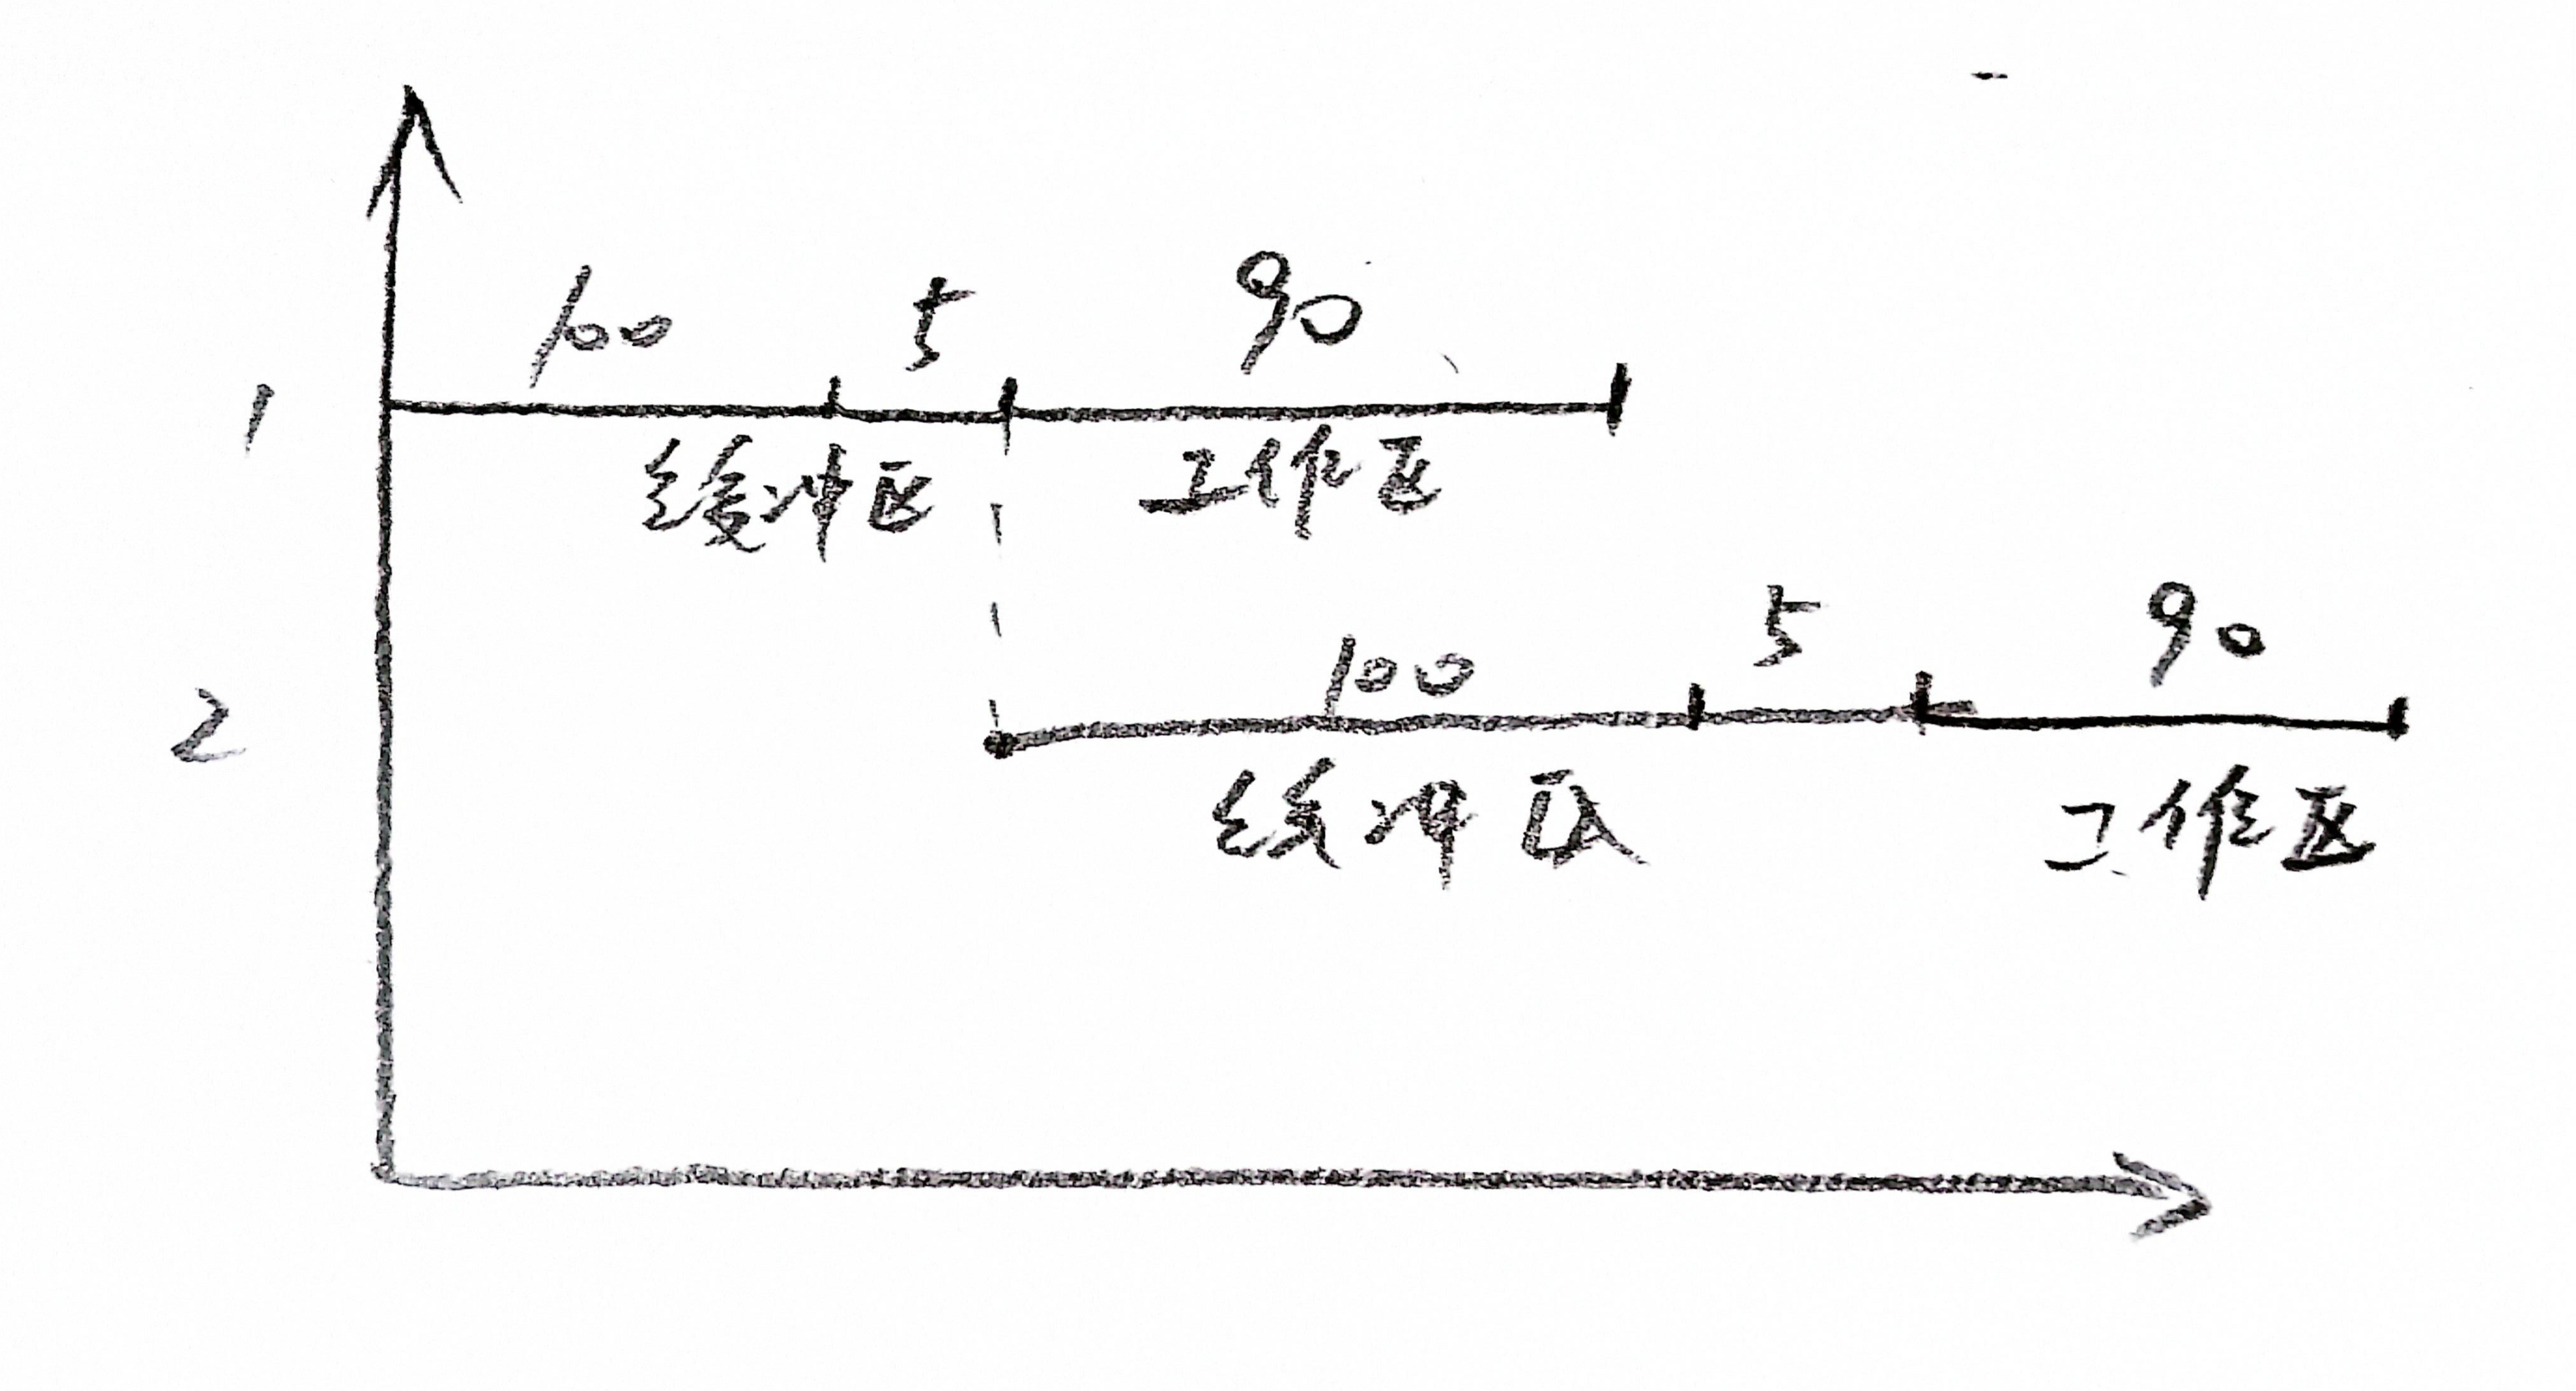 100 5 90
1
缓冲区 工作区
100 5 90
2
缓冲区 工作区